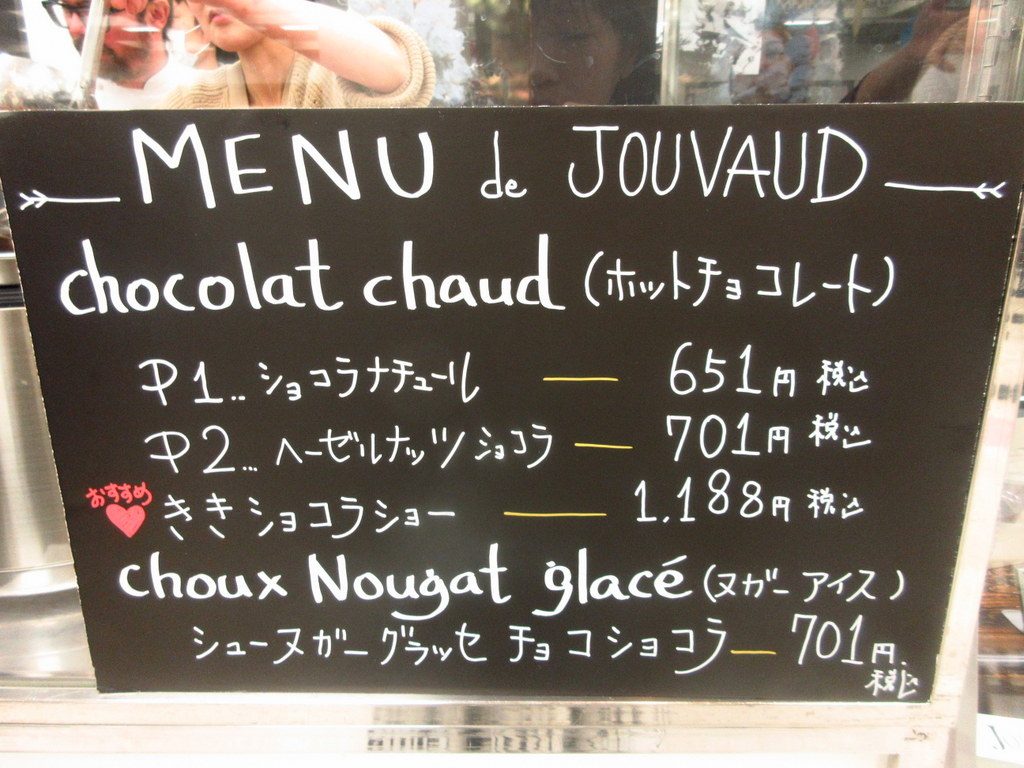 MENU de JOUVAUD
chocolat chaud (ホットチョコレート)
P1.. ショコラナチュール 651円 税込
P2... ヘーゼルナッツショコラ 701円 税込
おすすめ
ききショコラショー 1.188円 税込
choux Nougat glacé (ヌガーアイス)
シューヌガーグラッセ チョコショコラ 701円.
税込